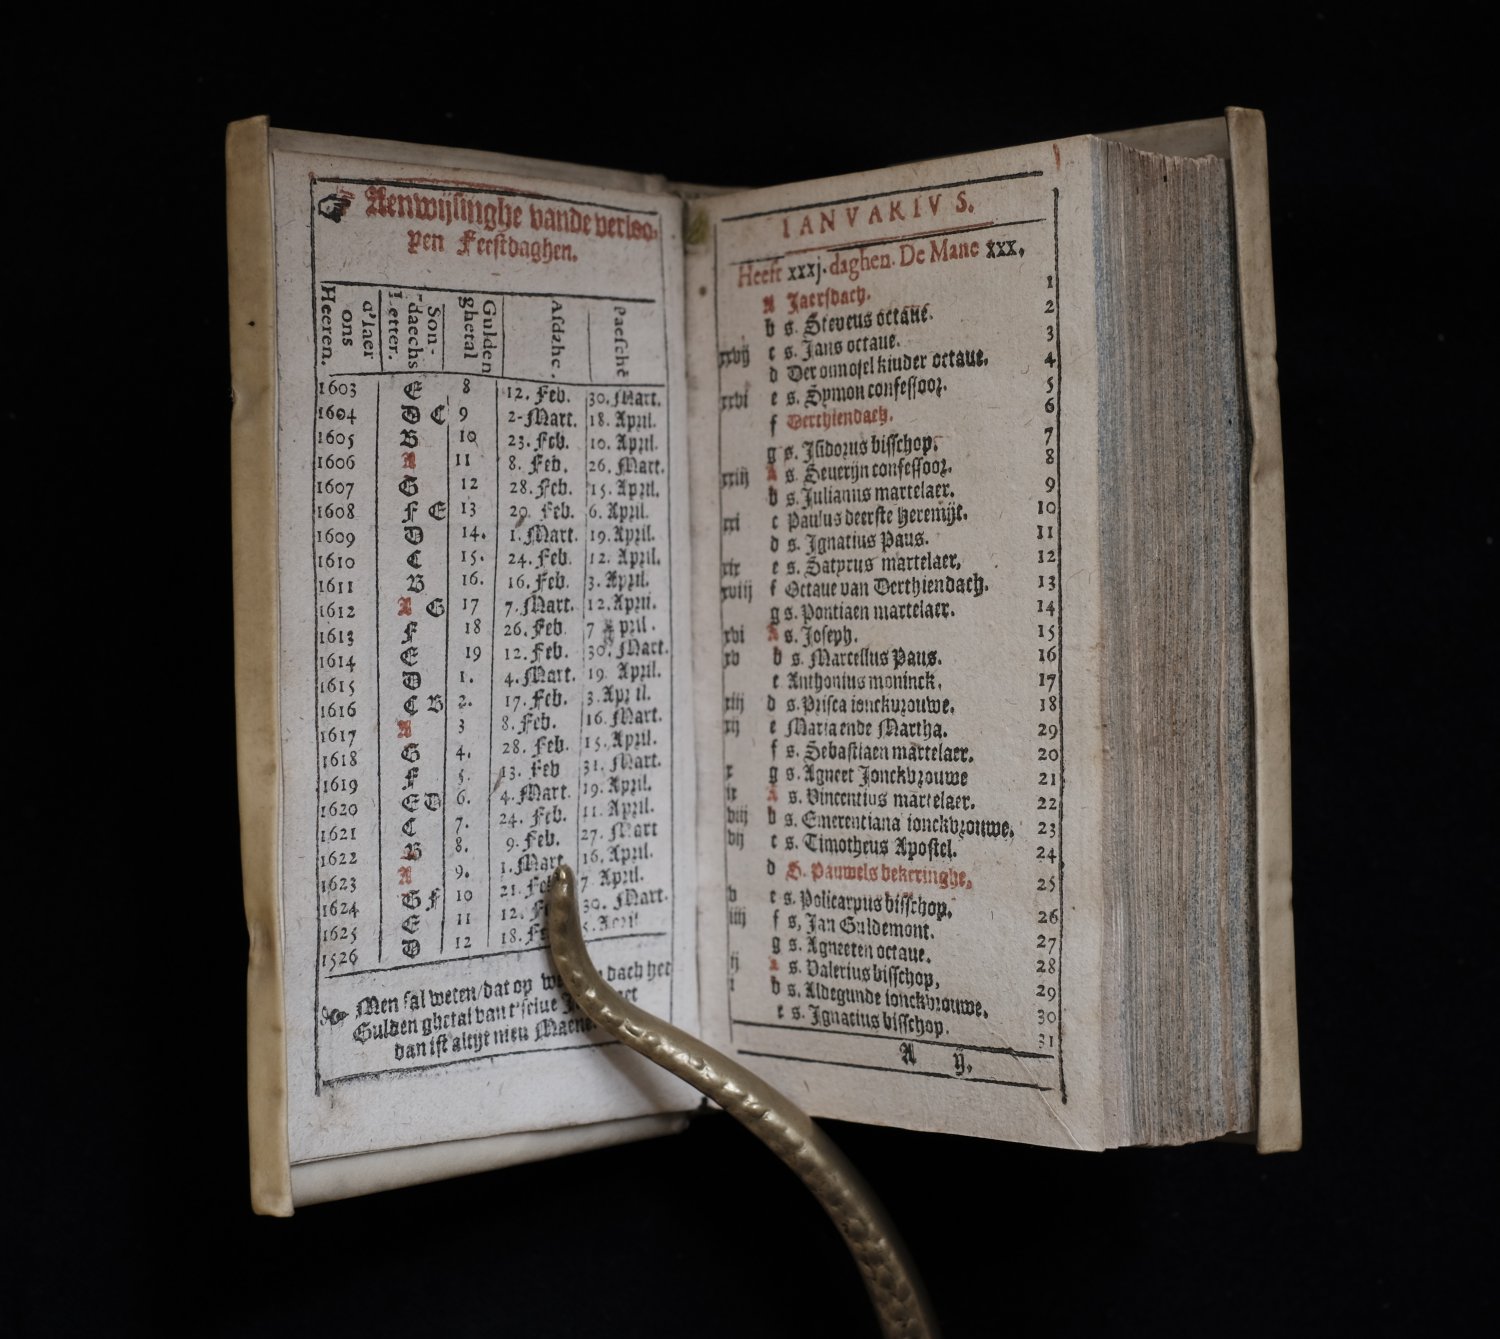 Aenwijsinghe vande verloo-
pen Feestdaghen.
Heeren. ons d'Iaer Son- -daechs Letter. Gulden ghetal Asdzhe. Paesche
1603 E 8 12. Feb. 30. Mart.
1604 D C 9 2-Mart. 18. April.
1605 B 10 23. Feb. 10. April.
1606 A 11 8. Feb. 26. Mart.
1607 G 12 28. Feb. 15. April.
1608 F E 13 20. Feb. 6. April.
1609 D 14. 1. Mart. 19. April.
1610 C 15. 24. Feb. 12. April.
1611 B 16. 16. Feb. 3. April.
1612 A G 17 7. Mart. 12. April.
1613 F 18 26. Feb 7 April.
1614 E 19 12. Feb. 30. Mart.
1615 D 1. 4. Mart. 19 April.
1616 C B 2. 17. Feb. 3. April.
1617 A 3 8. Feb. 16. Mart.
1618 G 4. 28. Feb. 15. April.
1619 F 5. 13. Feb 31. Mart.
1620 E D 6. 4. Mart. 19. April.
1621 C 7. 24. Feb. 11. April.
1622 B 8. 9. Feb. 27. Mart
1623 A 9. 1. Mart. 16. April.
1624 G F 10 21. 7 April.
1625 E 11 12. 30. Mart.
1526 D 12 18.
Men sal weten/dat op dach het
Gulden ghetal van t'selue
dan ist altijt nieu Maene.
IANVARIVS.
Heeft xxxj. daghen. De Mane xxx.
A Jaersdach. 1
b s. Steuens octaue. 2
xxvij c s. Jans octaue. 3
d Der onnosel kinder octaue. 4
xxvi e s. Symon confessoor. 5
f Derthiendach. 6
g s. Isidorus bisschop. 7
xxiij A s. Seuerijn confessoor. 8
b s. Julianus martelaer. 9
xxi c Paulus deerste heremijt. 10
d s. Ignatius Paus. 11
xix e s. Satyrus martelaer, 12
xviij f Octaue van Derthiendach. 13
g s. Pontiaen martelaer. 14
xvi A s. Joseph. 15
xv b s. Marcellus Paus. 16
c Anthonius moninck. 17
xiij d s. Prisca ionckvrouwe. 18
xij e Maria ende Martha. 29
f s. Sebastiaen martelaer. 20
x g s. Agneet Jonckvrouwe 21
ix A s. Vincentius martelaer. 22
viij b s. Emerentiana ionckvrouwe. 23
vij c s. Timotheus Apostel. 24
d S. Pauwels bekeringhe, 25
v e s. Policarpus bisschop, 26
iiij f s, Jan Guldemont. 27
g s. Agneeten octaue. 28
ij A s. Valerius bisschop, 29
i b s. Aldegunde ionckvrouwe. 30
c s. Ignatius bisschop. 31
A ij.